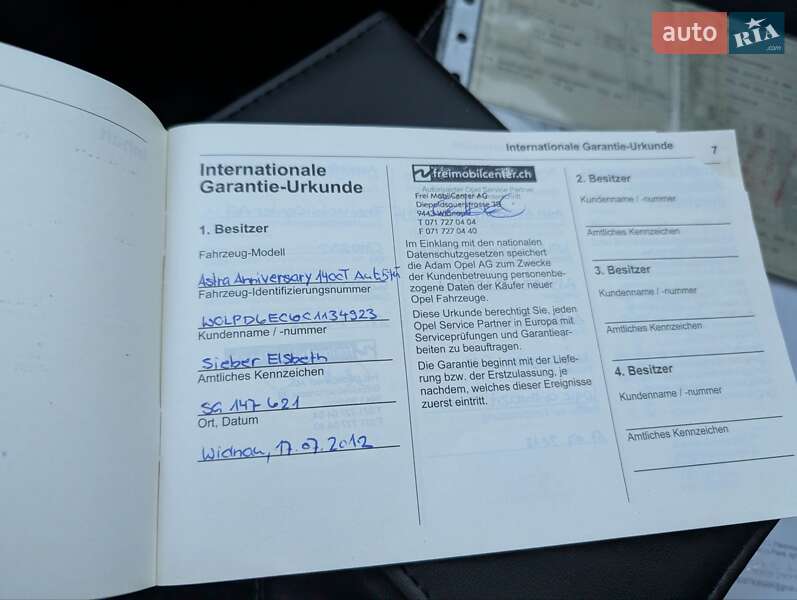 auto RIA .com
Internationale Garantie-Urkunde 7
Internationale
Garantie-Urkunde
1. Besitzer
Fahrzeug-Modell
Astra Anniversary 1400T Aut 5tT
Fahrzeug-Identifizierungsnummer
W0LPD6EC6C1134923
Kundenname / -nummer
Sieber Elsbeth
Amtliches Kennzeichen
SG 147 621
Ort, Datum
Widnau, 17.07.2012
freimobilcenter.ch
Autorisierter Opel Service Partner
Frei MobilCenter AG
Diepoldsauerstrasse
9443 Widnau
T 071 727 04 04
F 071 727 04 40
Im Einklang mit den nationalen
Datenschutzgesetzen speichert
die Adam Opel AG zum Zwecke
der Kundenbetreuung personenbe-
zogene Daten der Käufer neuer
Opel Fahrzeuge.
Diese Urkunde berechtigt Sie, jeden
Opel Service Partner in Europa mit
Serviceprüfungen und Garantiear-
beiten zu beauftragen.
Die Garantie beginnt mit der Liefe-
rung bzw. der Erstzulassung, je
nachdem, welches dieser Ereignisse
zuerst eintritt.
2. Besitzer
Kundenname / -nummer
Amtliches Kennzeichen
3. Besitzer
Kundenname / -nummer
Amtliches Kennzeichen
4. Besitzer
Kundenname / -nummer
Amtliches Kennzeichen